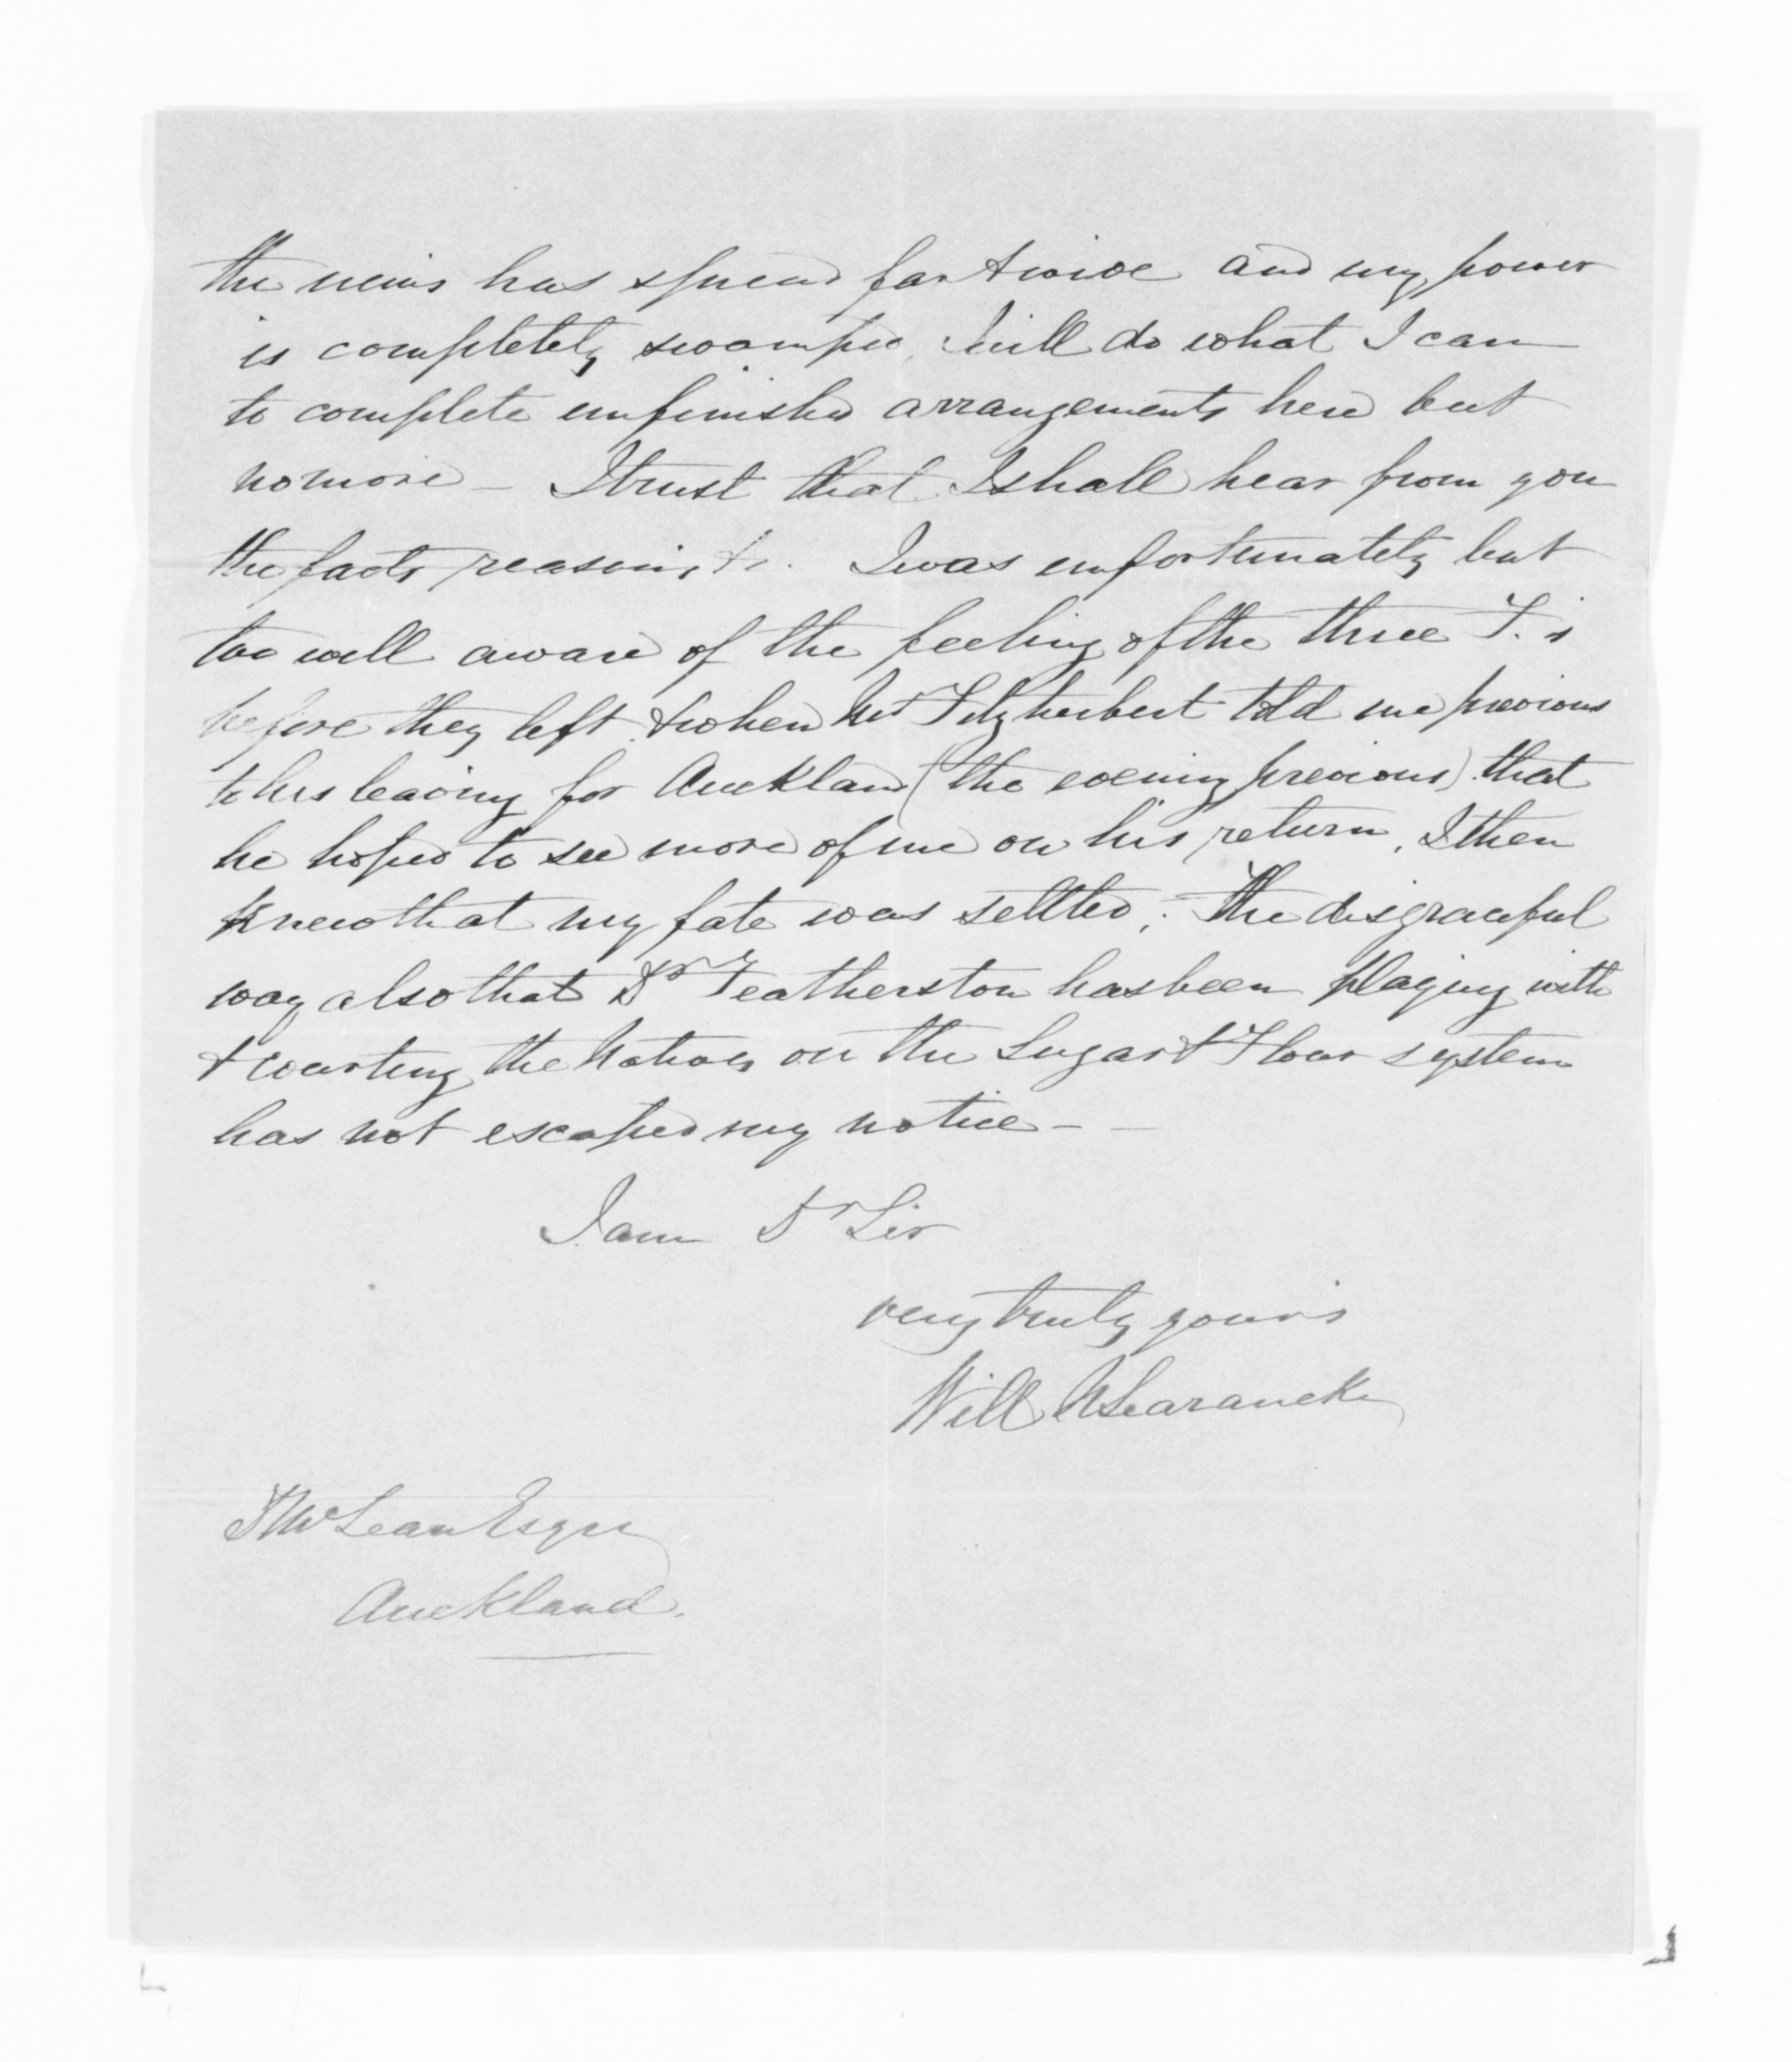 the news has spread far & wide and my power
is completely swamped, I will do what I can
to complete unfinished arrangements here but
no more – I trust that I shall hear from you
the facts, reasons, &c. I was unfortunately but
too well aware of the feeling of the three F.'s
before they left & when Mr Fitzherbert told me previous
to his leaving for Auckland (the evening previous) that
he hoped to see more of me on his return, I then
knew that my fate was settled; The disgraceful
way also that Dr Featherston has been playing with
& courting the Natives on the Sugar & Flour system
has not escaped my notice – –
I am Dr Sir
very truly yours
Will N Searancke
D McLean Esqre
Auckland.